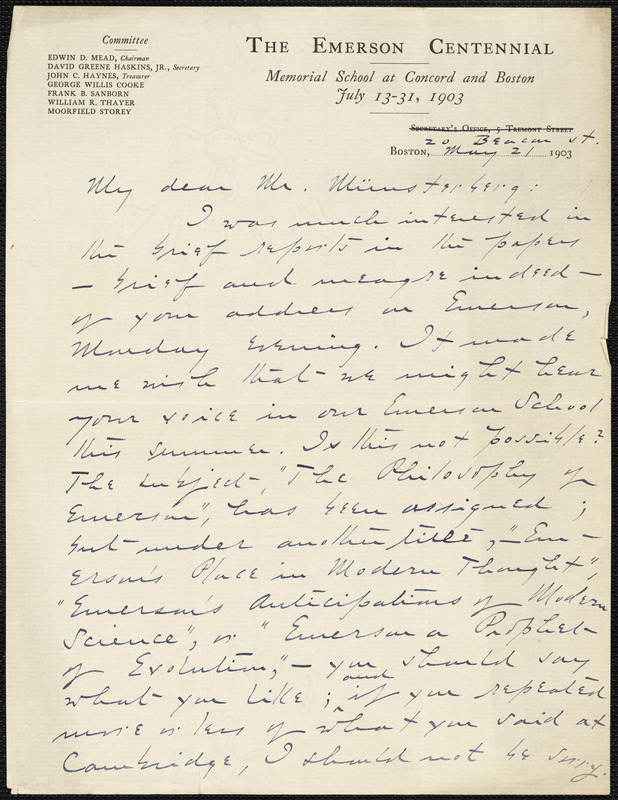 Committee
EDWIN D. MEAD, Chairman
DAVID GREENE HASKINS, JR., Secretary
JOHN C. HAYNES, Treasurer
GEORGE WILLIS COOKE
FRANK B. SANBORN
WILLIAM R. THAYER
MOORFIELD STOREY
THE EMERSON CENTENNIAL
Memorial School at Concord and Boston
July 13-31, 1903
SECRETARY'S OFFICE, 5 TREMONT STREET
20 Beacon St.
BOSTON, May 21 1903
My dear Mr. Münsterberg:
I was much interested in
the brief reports in the papers
— brief and meagre indeed —
of your address on Emerson,
Monday evening. It made
me wish that we might hear
your voice in our Emerson School
this summer. Is this not possible?
The subject, "The Philosophy of
Emerson", has been assigned;
but under another title, — "Em-
erson's Place in Modern Thought",
"Emerson's Anticipations of Modern
Science", or "Emerson a Prophet
of Evolution", — you should say
what you like; and if you repeated
more or less of what you said at
Cambridge, I should not be sorry.